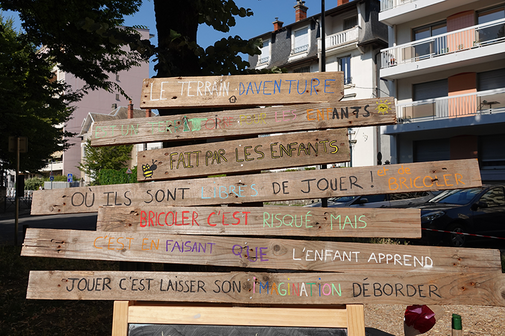 LE TERRAIN D'AVENTURE
ANS
FAIT PAR LES ENFANTS
OÙ ILS SONT LIBRES DE JOUER ! ET DE BRICOLER
BRICOLER C'EST RISQUÉ MAIS
C'EST EN FAISANT QUE L'ENFANT APPREND
JOUER C'EST LAISSER SON IMAGINATION DÉBORDER